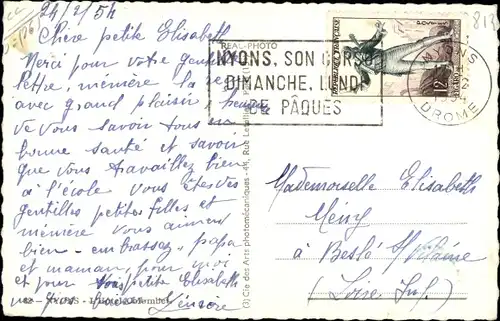 24/2/54
Chère petite Elisabeth
Merci pour votre gentille
lettre, mémère la
avec grand plaisir
de vous savoir en
bonne santé et savoir
que vous travaillez bien
à l'école vous êtes des
gentilles petites filles et
mémère vous aiment
bien - embrassez papa
et maman, pour moi
et pour vous petite Elisabeth
REAL-PHOTO
NYONS, SON CORSO
DIMANCHE, LUNDI
DE PÂQUES
12F
NYONS
DROME
Cie des Arts photomécaniques - 44, Rue Letellier
Mademoiselle Elisabeth
Mény
à Beslé
(Loire Inf.)
NYONS -